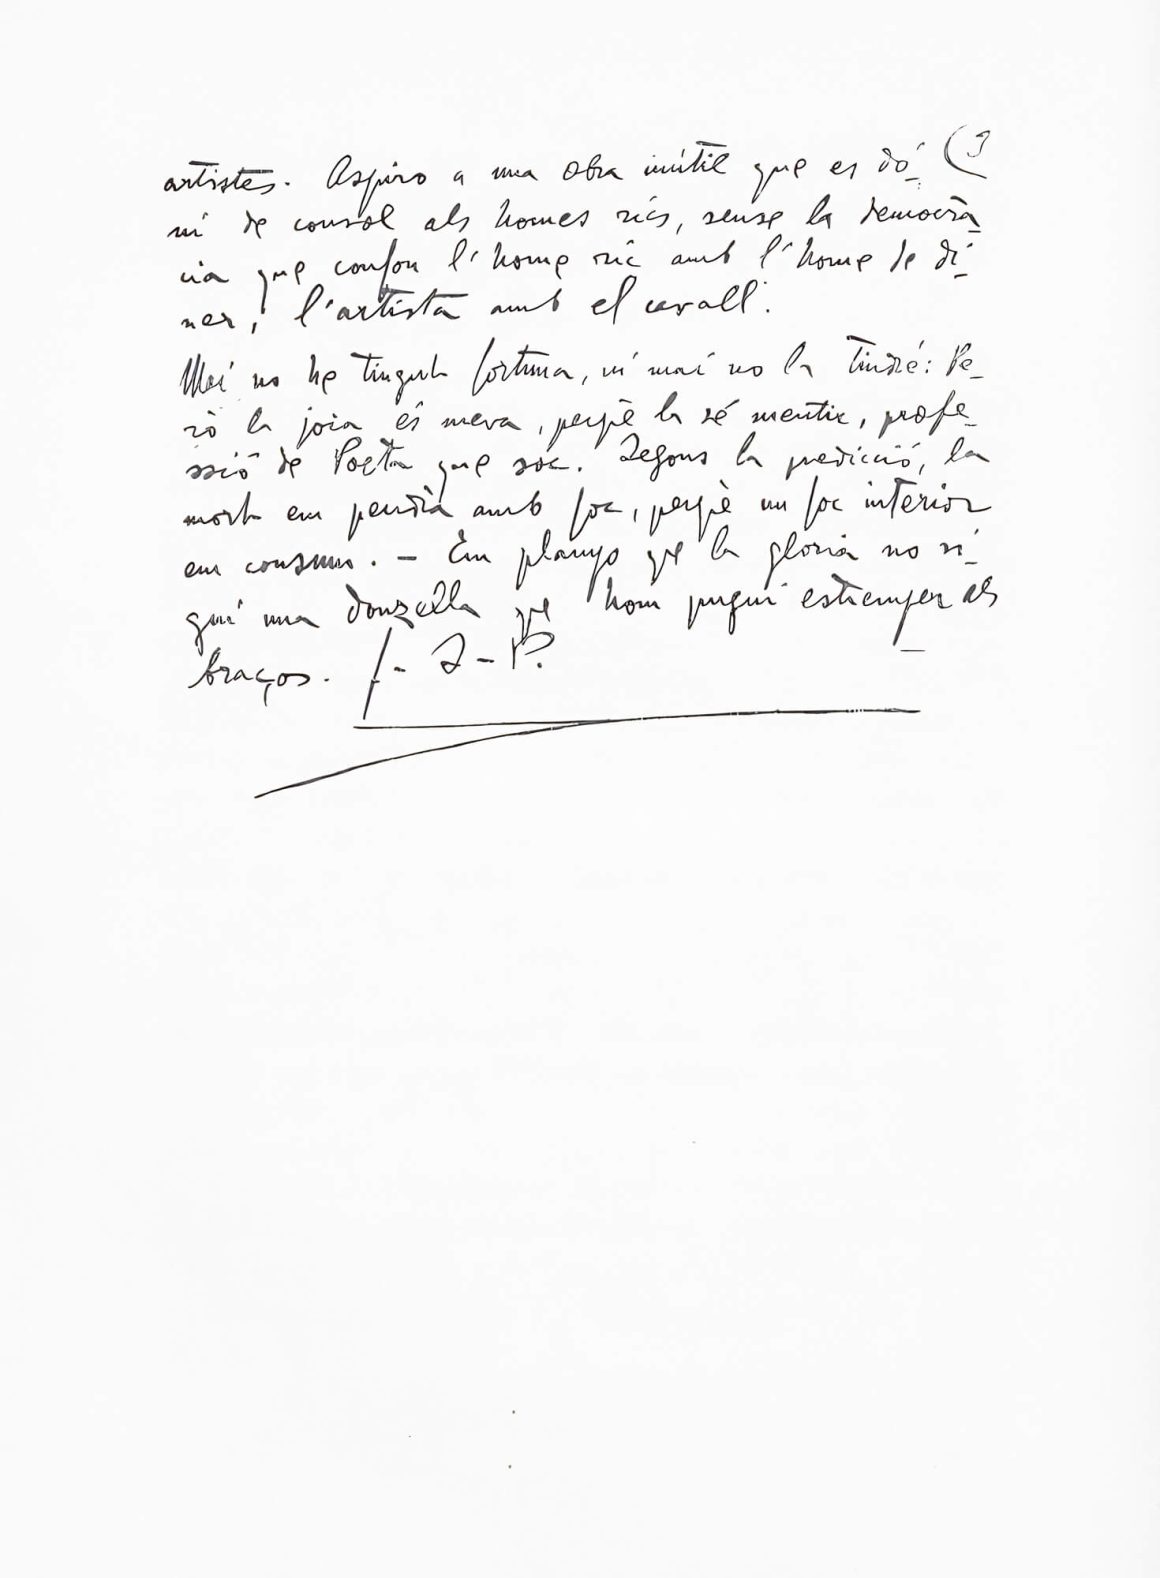 artistes. Aspiro a una obra inútil que es dó- (3
ni de consol als homes rics, sense la democrà-
cia que confon l'home ric amb l'home de di-
ner, l'artista amb el cavall.
Mai no he tingut fortuna, ni mai no la tindré: Pe-
rò la joia és meva, perquè la sé mentir, profe-
ssió de Poeta que soc. Segons la predicció, la
mort em pendrà amb foc, perquè un foc interior
em consum. - Em planyo que la gloria no si-
gui una donzella que hom pugui estrenyer als
braços. J-S-P.